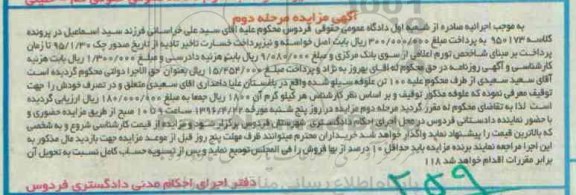 آگهی مزایده مرحله دوم
به موجب اجرائیه صادره از شعبه اول دادگاه عمومی حقوقی فردوس محکوم علیه آقای سید علی خراسانی فرزند سید اسماعیل در پرونده
کلاسه ۹۵۰۱۷۳ به پرداخت مبلغ ۳۰۰/۰۰۰/۰۰۰ ریال بابت اصل خواسته و نیز پرداخت خسارت تاخیر تادیه از تاریخ صدور چک ۹۵/۱/۳۰ تا زمان
پرداخت بر مبنای شاخص تورم اعلامی از سوی بانک مرکزی و مبلغ ۹/۰۸۰/۰۰۰ ریال بابت هزینه دادرسی و مبلغ ۱/۳۰۰/۰۰۰ ریال بابت هزینه
کارشناسی و آگهی روزنامه در حق محکوم له آقای بهروز به نژاد و پرداخت مبلغ ۱۵/۴۵۴/۰۰۰ ریال بعنوان حق الاجرا دولتی محکوم گردیده است
آقای سعید سعیدی از طرف محکوم علیه ۱۰۰ تن علوفه سیلو شده واقع در باغستان علیا دامداری آقای سعیدی متعلق و در تصرف خودش را جهت
توقیف معرفی نموده که علوفه مذکور توقیف و بر اساس نظر کارشناس هر کیلو گرم آن ۱/۸۰۰ ریال جمعا به مبلغ ۱۸۰/۰۰۰/۰۰۰ ریال ارزیابی گردیده
است لذا به تقاضای محکوم له مقرر گردید مرحله دوم مزایده در روز پنج شنبه مورخه ساعت ۱۰ صبح از طریق مزایده حضوری و
با حضور نماینده دادستانی فردوس در محل اجرای احکام دادگستری شهرستان فردوس برگزار شود مزایده از قیمت کارشناسی شروع و به شخصی
که بالاترین قیمت را پیشنهاد نماید واگذار خواهد شد خریداران محترم میتوانند ظرف مهلت پنج روز قبل از موعد مزایده جهت بازدید مال مذکور به
این اجرا مراجعه نمایند برنده مزایده باید حداقل ۱۰ درصد از بها فروش را فی المجلس تودیع نماید و پس از تسویه حساب کامل نسبت به تحویل آن
برابر مقررات اقدام خواهد شد ۱۱۸
دفتر اجرای احکام مدنی دادگستری فردوس
۲۵۹